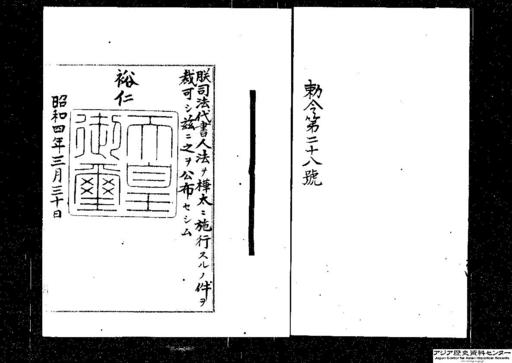 勅令第二十八號
朕司法代書人法ヲ樺太ニ施行スルノ件ヲ
裁可シ茲ニ之ヲ公布セシム
裕仁
天皇
御璽
昭和四年三月三十日
アジア歴史資料センター
Japan Center for Asian Historical Records